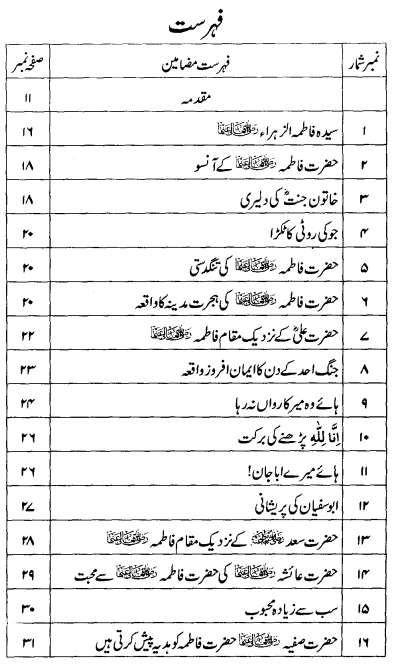 فہرست
نمبر شمار فہرست مضامین صفحہ نمبر
مقدمہ ۱۱
۱ سیدہ فاطمۃ الزہراء رضی اللہ عنہا ۱۶
۲ حضرت فاطمہ رضی اللہ عنہا کے آنسو ۱۸
۳ خاتون جنتؓ کی دلیری ۱۸
۴ جو کی روٹی کا ٹکڑا ۲۰
۵ حضرت فاطمہ رضی اللہ عنہا کی تنگدستی ۲۰
۶ حضرت فاطمہ رضی اللہ عنہا کی ہجرت مدینہ کا واقعہ ۲۰
۷ حضرت علیؓ کے نزدیک مقام فاطمہ رضی اللہ عنہا ۲۲
۸ جنگ احد کے دن کا ایمان افروز واقعہ ۲۳
۹ ہائے وہ میر کارواں نہ رہا ۲۴
۱۰ اِنَّا لِلّٰهِ پڑھنے کی برکت ۲۶
۱۱ ہائے میرے ابا جان! ۲۶
۱۲ ابوسفیان کی پریشانی ۲۷
۱۳ حضرت سعد کے نزدیک مقام فاطمہ رضی اللہ عنہا ۲۸
۱۴ حضرت عائشہ رضی اللہ عنہا کی حضرت فاطمہ رضی اللہ عنہا سے محبت ۲۹
۱۵ سب سے زیادہ محبوب ۳۰
۱۶ حضرت صفیہ رضی اللہ عنہا حضرت فاطمہ کو ہدیہ پیش کرتی ہیں ۳۱